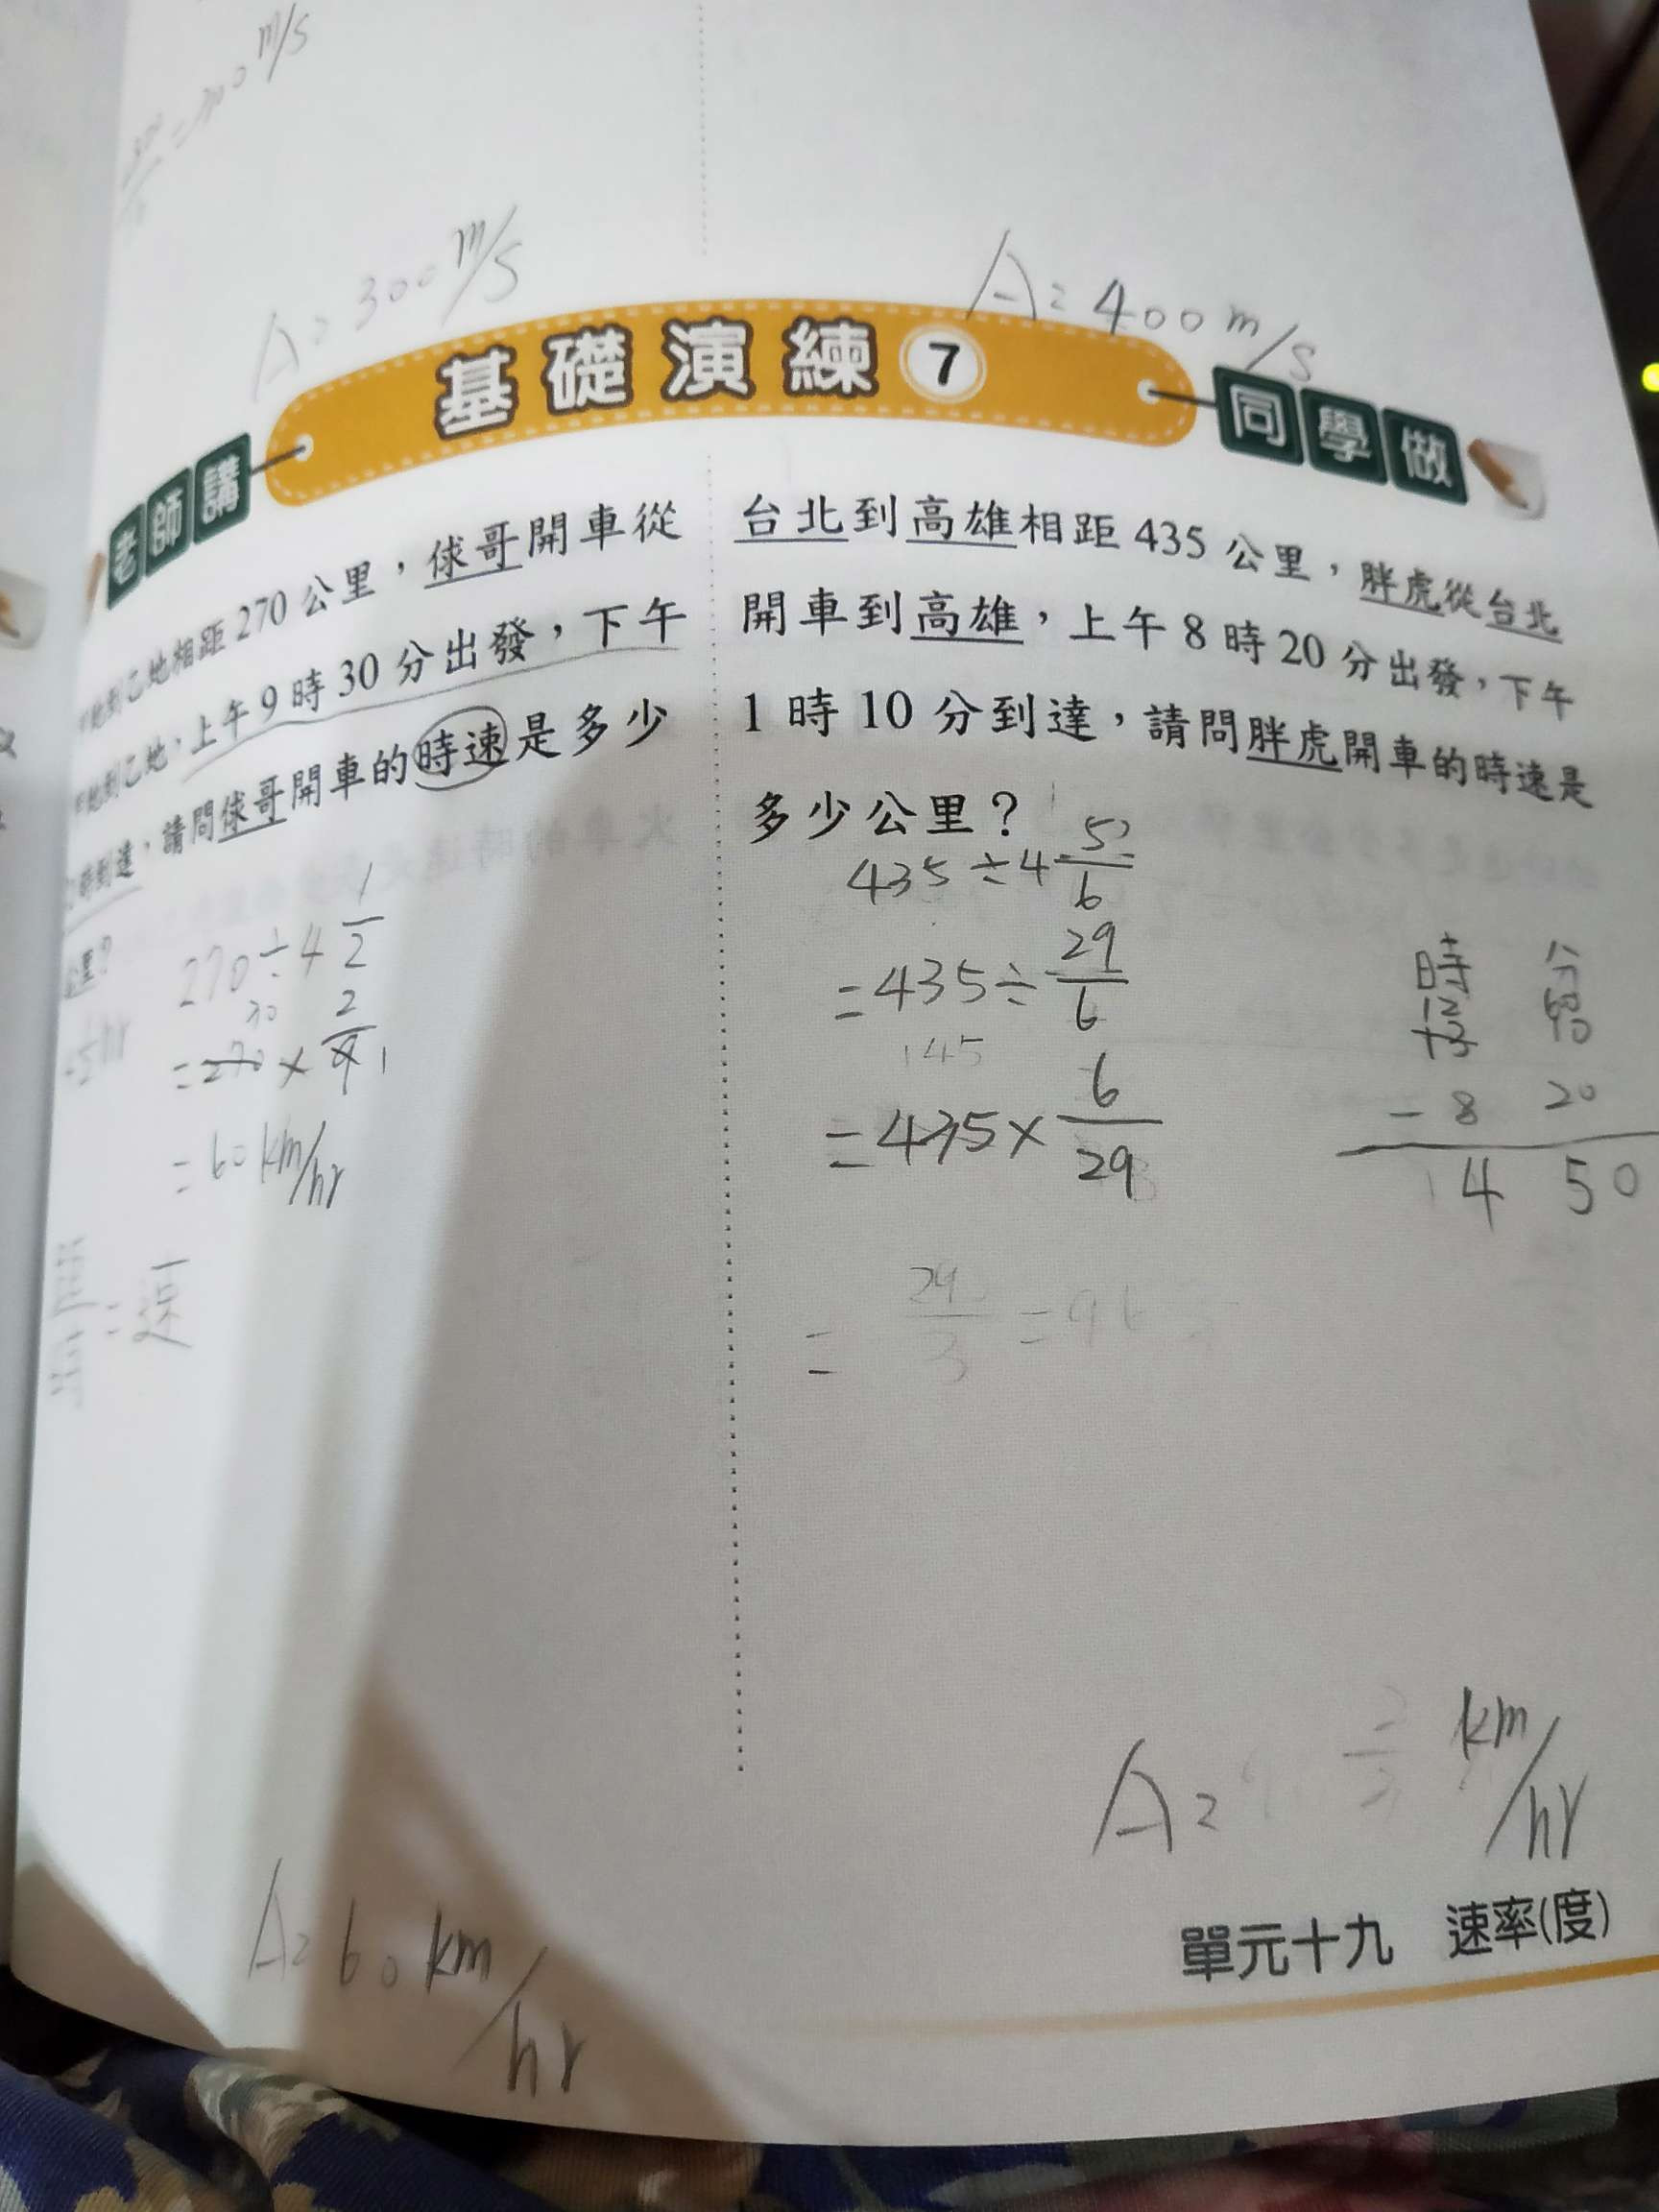 m/s
A=300 m/s
A=400 m/s
基礎演練 7
老師講
地相距270公里，俅哥開車從
地到乙地，上午9時30分出發，下午
時到達，請問俅哥開車的時速是多少
里？
270÷4 1/2
30
=270×2/9 1
=60 km/hr
=速
A=60 km/hr
同學做
台北到高雄相距435公里，胖虎從台北
開車到高雄，上午8時20分出發，下午
1時10分到達，請問胖虎開車的時速是
多少公里？
435÷4 5/6
=435÷29/6
145
=435×6/29
=
時 分
12
- 8 20
4 50
A= km/hr
單元十九 速率(度)